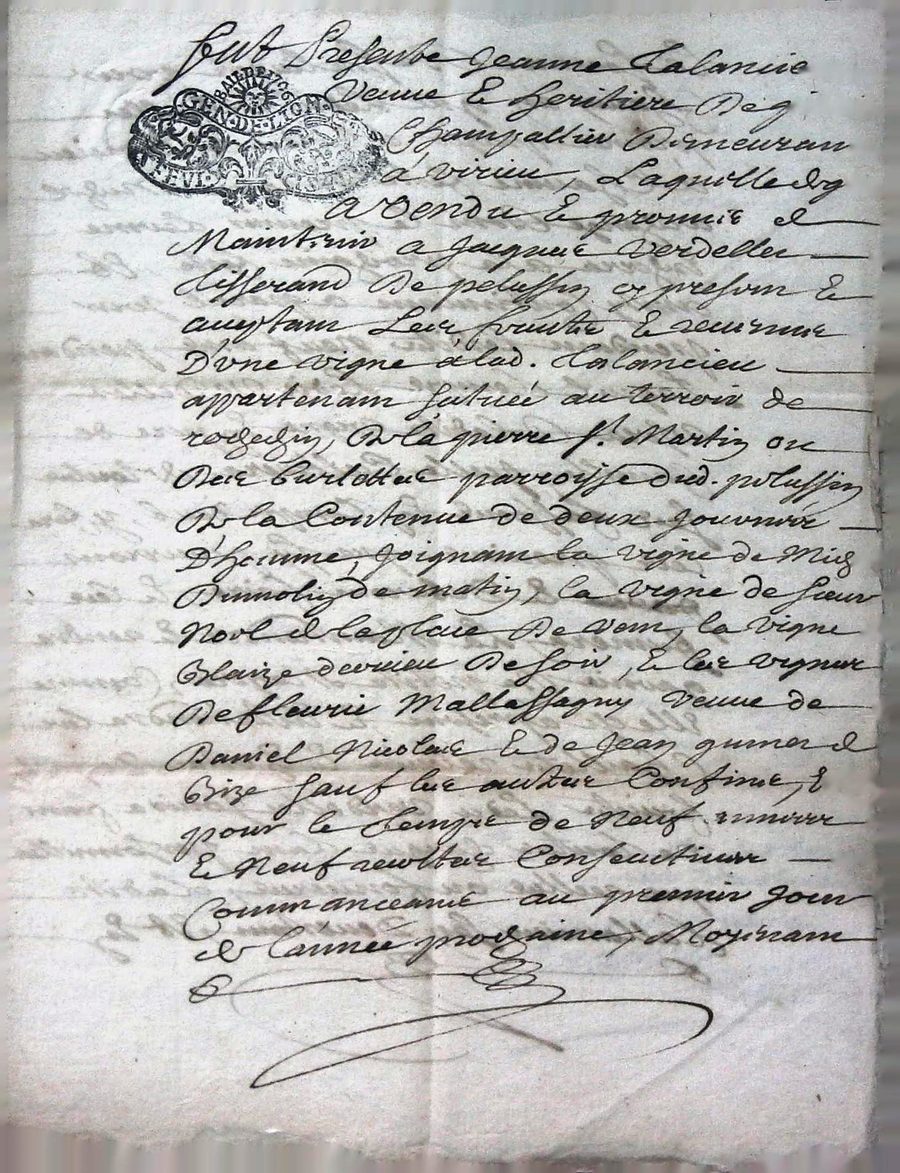 fut Presente Jeanne Talancie
BAIL DE 1706
GEN·DE·LION
veuve & heritiere de
Champallier demeuran
a virieu, Laquelle
a vendu & promis
Maintenir a Jacques Verdellet
tisserand de pelussin cy presem &
aceptam Les fruits & revenus
D'vne vigne a lad. Talancieu
appartenam scituée au terroir de
de la pierre St. Martin ou
des burlottes parroisse dud. pelussin
de la Contenue de deux Journées
D'homme, Joignam la vigne de
de matin, la vigne de sieur
Noel & la place de vem, la vigne
Blaize de soir, & les vignes
de fleurie Mallassagny veuve de
Daniel Nicolas & de Jean
Bize sauf les autres Confins, &
pour le temps de Neuf années
& Neuf recoltes Consecutives
Commanceant au premier Jour
de l'année prochaine, Moyenam